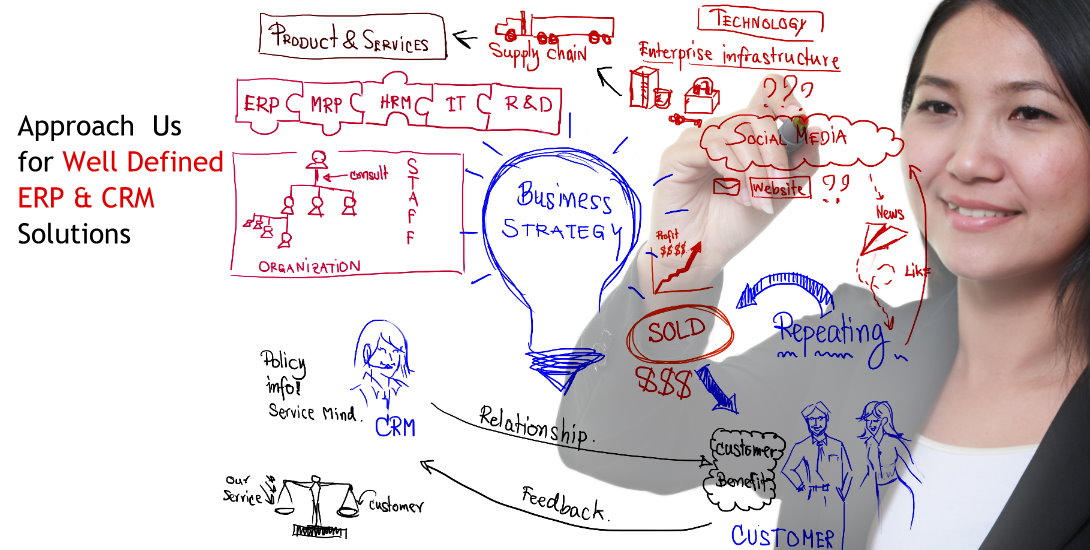 Approach Us
for Well Defined
ERP & CRM
Solutions
PRODUCT & SERVICES
Supply chain
TECHNOLOGY
Enterprise infrastructure
ERP MRP HRM IT R & D
???
SOCIAL MEDIA
website
??
consult
STAFF
ORGANIZATION
BUSINESS
STRATEGY
Profit
$$$$
News
Like
SOLD
$$$
Repeating
Policy
info!
Service Mind.
CRM
Relationship.
customer
Benefit
Feedback.
CUSTOMER
our
service
customer